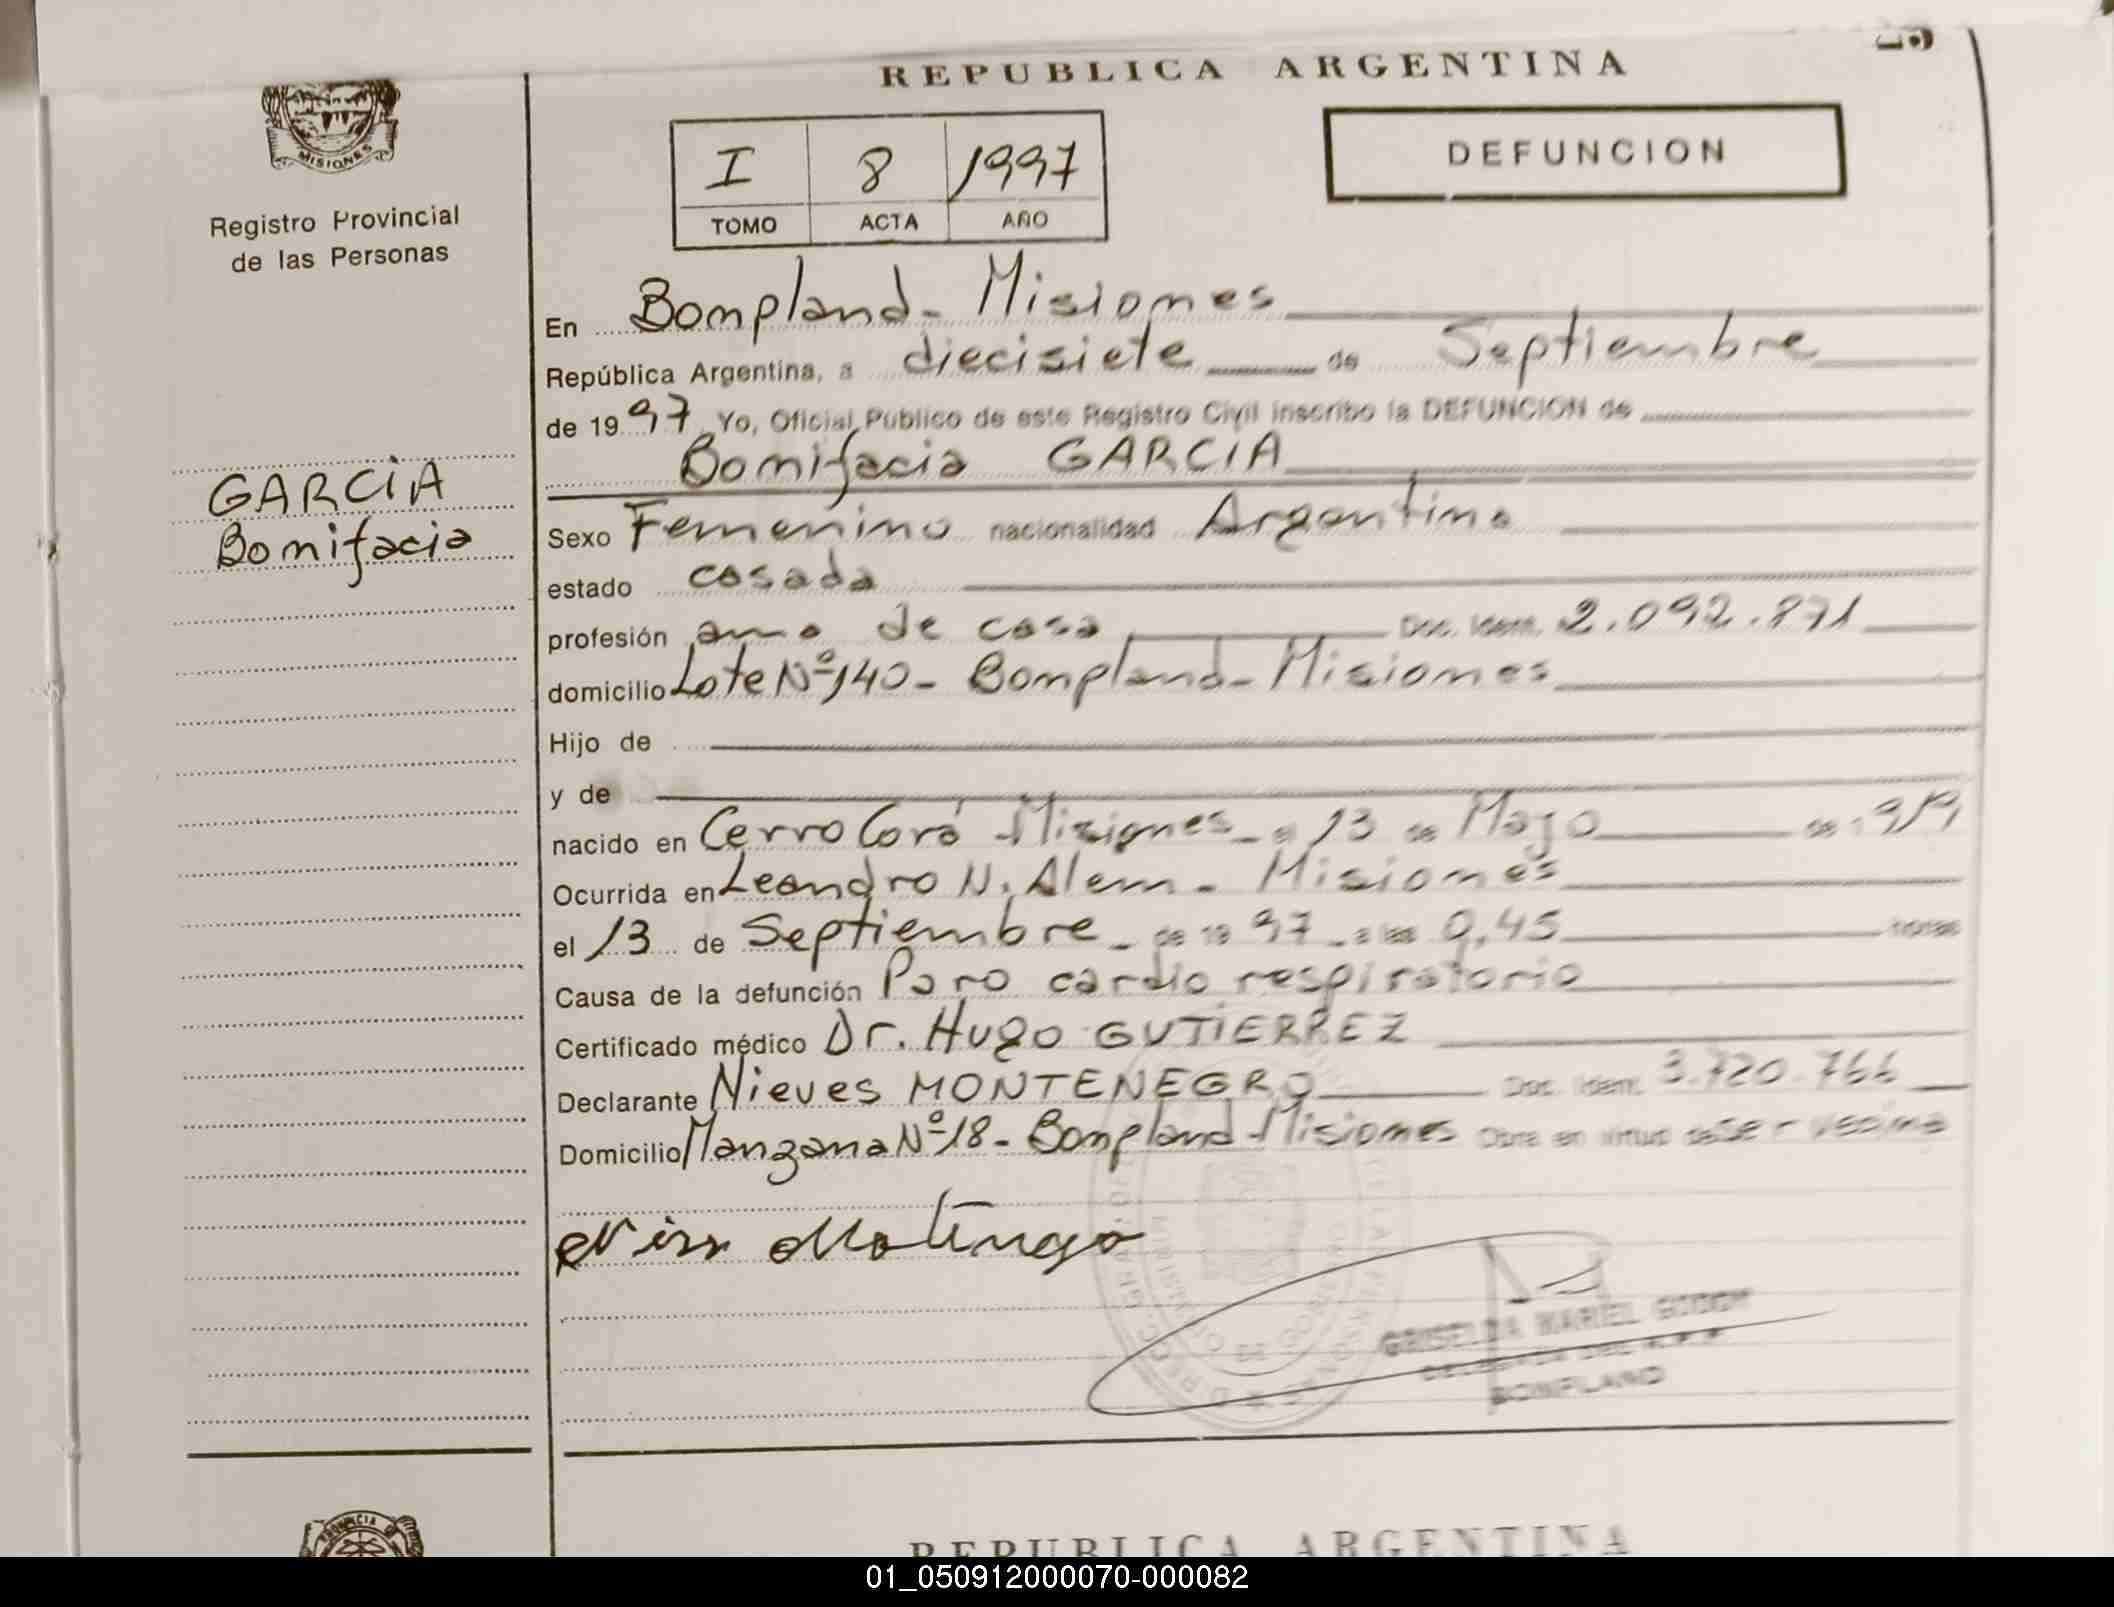 REPUBLICA ARGENTINA
MISIONES
Registro Provincial
de las Personas
I 8 1997
TOMO ACTA AÑO
DEFUNCION
GARCIA
Bonifacia
En Bompland - Misiones
República Argentina, a diecisiete de Septiembre
de 1997 Yo, Oficial Público de este Registro Civil inscribo la DEFUNCION de
Bonifacia GARCIA
Sexo Femenino nacionalidad Argentina
estado casada
profesión ama de casa Doc. Ident. 2.092.871
domicilio Lote Nº 140 - Bompland - Misiones
Hijo de
y de
nacido en Cerro Corá Misiones - a 13 de Mayo de 1919
Ocurrida en Leandro N. Alem - Misiones
el 13 de Septiembre - de 1997 - a las 0,45 horas
Causa de la defunción Paro cardio respiratorio
Certificado médico Dr. Hugo GUTIERREZ
Declarante Nieves MONTENEGRO Doc. Ident. 3.720.766
Domicilio Manzana Nº 18 - Bompland - Misiones Obra en virtud de ser vecina
GRISELDA MARIEL GODOY
DELEGADA DEL R.P.P.
BOMPLAND
PROVINCIA DE
REPUBLICA ARGENTINA
01_050912000070-000082